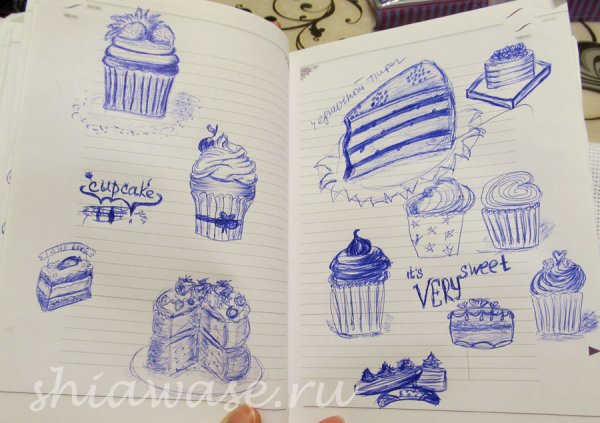 cupcake
Черничный пирог
it's
VERY sweet
shiawase.ru